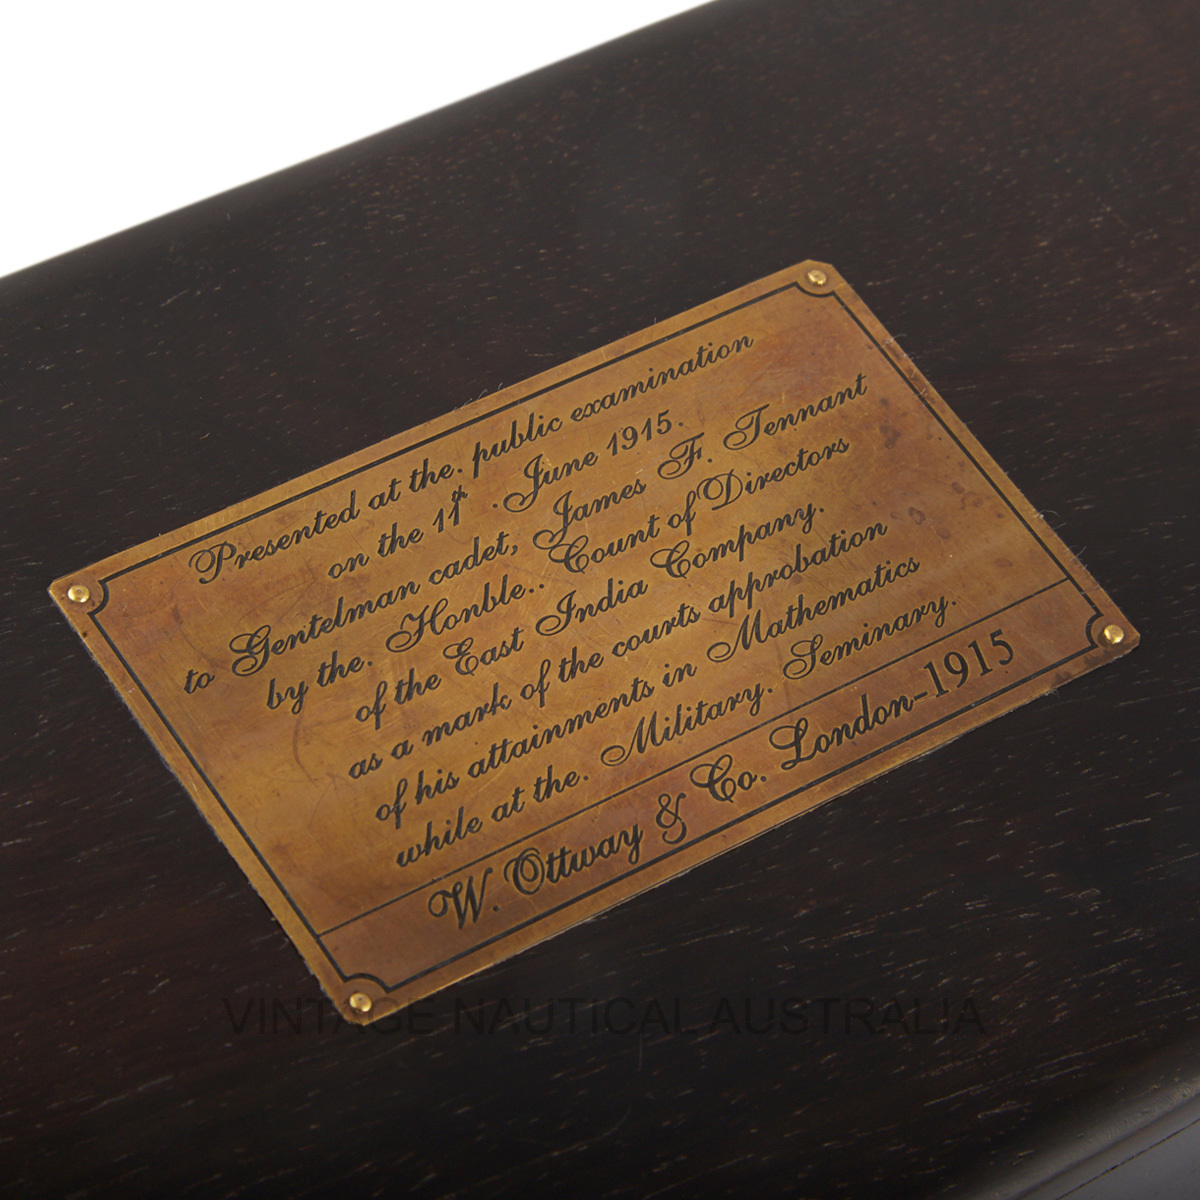 Presented at the. public examination
on the 11th . June 1915.
to Gentelman cadet, James F. Tennant
by the. Honble.. Count of Directors
of the East India Company.
as a mark of the courts approbation
of his attainments in Mathematics
while at the. Military. Seminary.
W. Ottway & Co. London-1915
VINTAGE NAUTICAL AUSTRALIA